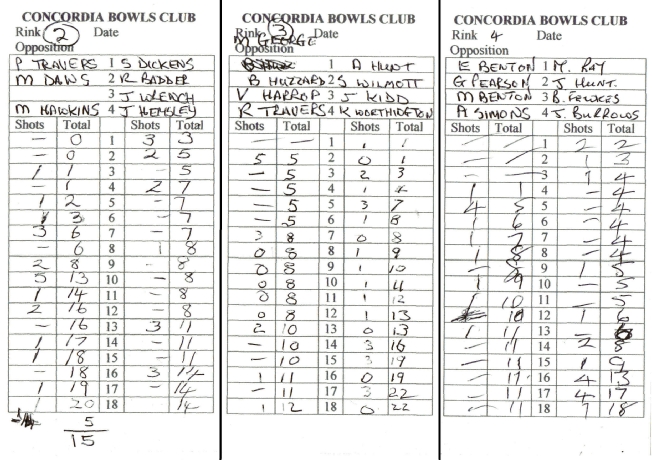 CONCORDIA BOWLS CLUB
Rink 2 Date
Opposition
P TRAVERS 1 S DICKENS
M DAWS 2 R BADDER
3 J WRENCH
M HAWKINS 4 J HEMSLEY
Shots Total Shots Total
— 0 1 3 3
— 0 2 2 5
1 1 3 - 5
— 1 4 2 7
1 2 5 - 7
1 3 6 - 7
3 6 7 - 7
— 6 8 1 8
2 8 9 - 8
5 13 10 - 8
1 14 11 - 8
2 16 12 - 8
— 16 13 3 11
1 17 14 - 11
1 18 15 - 11
— 18 16 3 14
1 19 17 - 14
1 20 18 14
5
15
CONCORDIA BOWLS CLUB
Rink 3 Date
M GEORGE
Opposition
1 A HUNT
B HUZZARD 2 S WILMOTT
V HARROP 3 J KIDD
R TRAVERS 4 K WORTHINGTON
Shots Total Shots Total
— — 1 1 1
5 5 2 0 1
— 5 3 2 3
— 5 4 1 4
— 5 5 3 7
— 5 6 1 8
3 8 7 0 8
0 8 8 1 9
0 8 9 1 10
0 8 10 1 11
0 8 11 1 12
0 8 12 1 13
2 10 13 0 13
— 10 14 3 16
— 10 15 3 19
1 11 16 0 19
— 11 17 3 22
1 12 18 0 22
CONCORDIA BOWLS CLUB
Rink 4 Date
Opposition
E BENTON 1 M. RAY
G PEARSON 2 J. HUNT.
M BENTON 3 B. FEWKES
A SIMONS 4 J. BURROWS
Shots Total Shots Total
— — 1 2 2
— — 2 1 3
— — 3 1 4
1 1 4 - 4
4 5 5 - 4
1 6 6 - 4
1 7 7 - 4
1 8 8 - 4
— 8 9 1 5
1 9 10 - 5
1 10 11 - 5
10 12 1 6
1 11 13 - 6
— 11 14 2 8
— 11 15 1 9
— 11 16 4 13
— 11 17 4 17
— 11 18 1 18